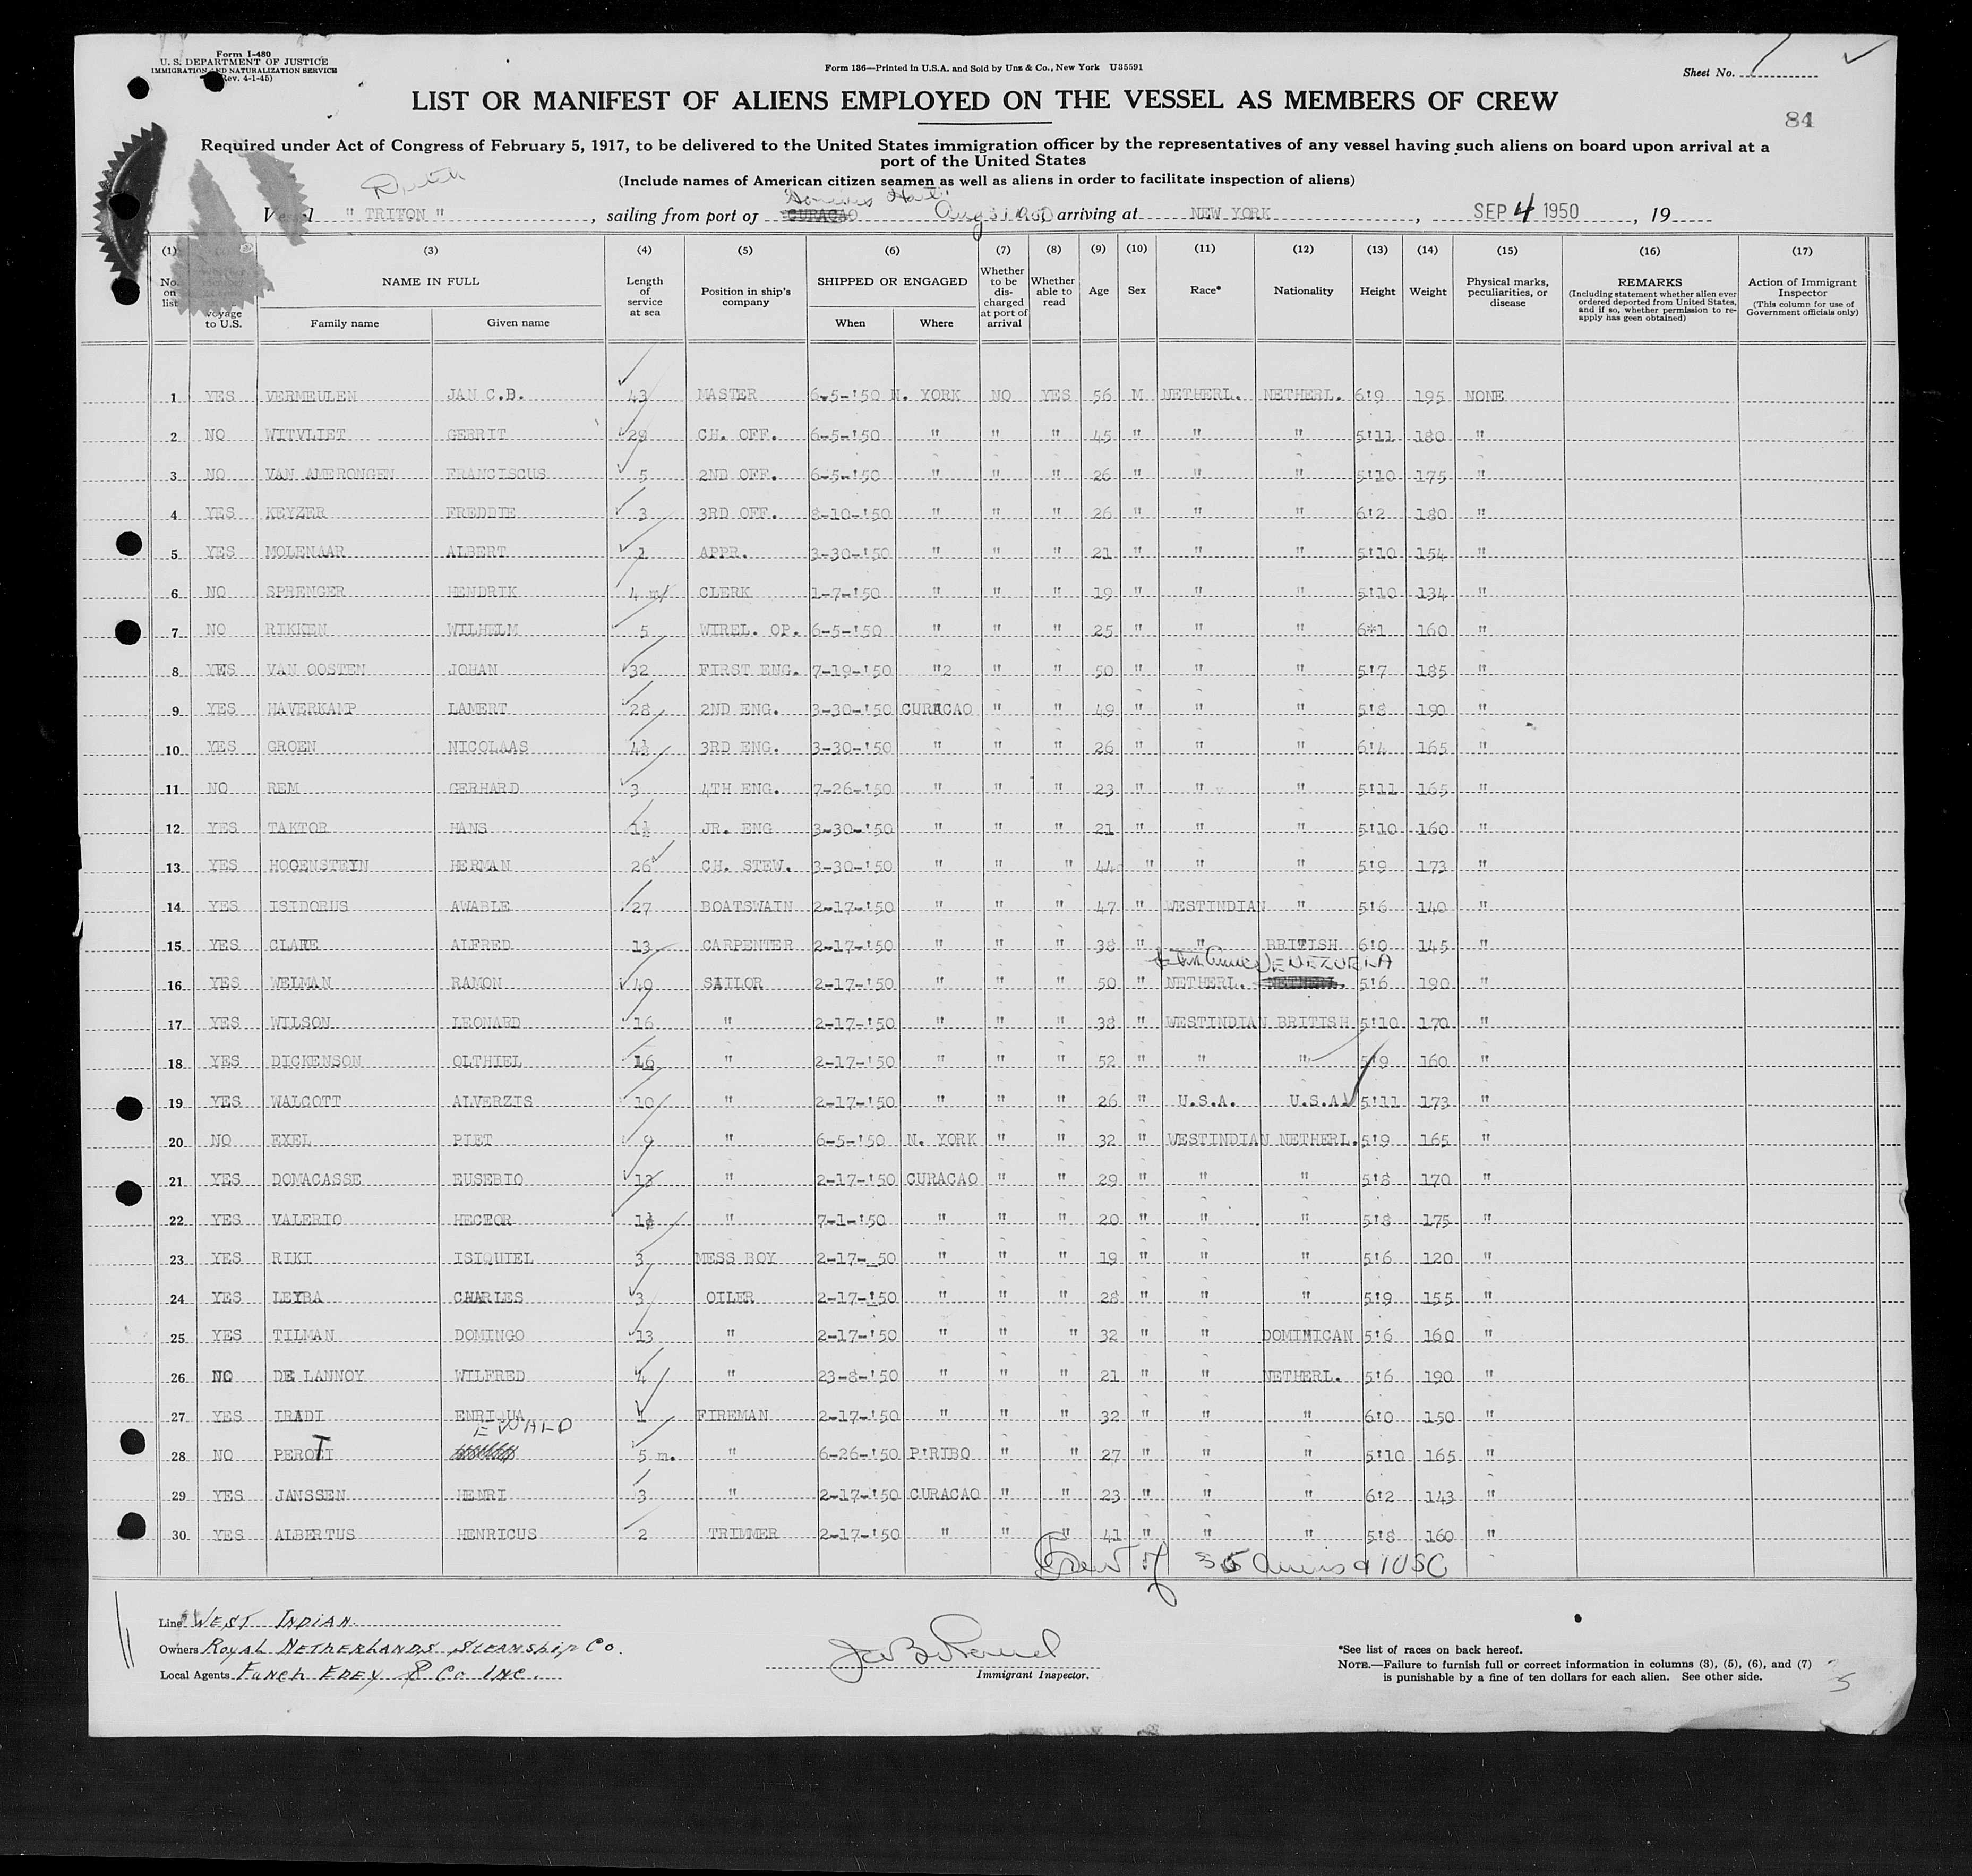 Form I-480
U. S. DEPARTMENT OF JUSTICE
IMMIGRATION AND NATURALIZATION SERVICE
(Rev. 4-1-45)
Form 136—Printed in U.S.A. and Sold by Unz & Co., New York U35591
Sheet No. 1
LIST OR MANIFEST OF ALIENS EMPLOYED ON THE VESSEL AS MEMBERS OF CREW
84
Required under Act of Congress of February 5, 1917, to be delivered to the United States immigration officer by the representatives of any vessel having such aliens on board upon arrival at a
port of the United States
(Include names of American citizen seamen as well as aliens in order to facilitate inspection of aliens)
Dutch
Vessel " TRITON ", sailing from port of CURACAO Aug 31 1950 arriving at NEW YORK, SEP 4 1950, 19
(1) (3) (4) (5) (6) (7) (8) (9) (10) (11) (12) (13) (14) (15) (16) (17)
No. on list voyage to U.S. NAME IN FULL Family name Given name Length of service at sea Position in ship's company SHIPPED OR ENGAGED When Where Whether to be discharged at port of arrival Whether able to read Age Sex Race* Nationality Height Weight Physical marks, peculiarities, or disease REMARKS (Including statement whether alien ever ordered deported from United States, and if so, whether permission to re-apply has geen obtained) Action of Immigrant Inspector (This column for use of Government officials only)
1 YES VERMEULEN JAN C.B. 43 MASTER 6-5-'50 N. YORK NO YES 56 M NETHERL. NETHERL. 6'9 195 NONE
2 NO WITVLIET GERRIT 29 CH. OFF. 6-5-'50 " " " 45 " " " 5'11 180 "
3 NO VAN AMERONGEN FRANCISCUS 5 2ND OFF. 6-5-'50 " " " 26 " " " 5'10 175 "
4 YES KEYZER FREDDIE 3 3RD OFF. 8-10-'50 " " " 26 " " " 6'2 180 "
5 YES MOLENAAR ALBERT 1 APPR. 3-30-'50 " " " 21 " " " 5'10 154 "
6 NO SPRENGER HENDRIK 4 m/ CLERK 1-7-'50 " " " 19 " " " 5'10 134 "
7 NO RIKKEN WILHELM 5 WIREL. OP. 6-5-'50 " " " 25 " " " 6*1 160 "
8 YES VAN OOSTEN JOHAN 32 FIRST ENG. 7-19-'50 "2 " " 50 " " " 5'7 185 "
9 YES HAVERKAMP LAMERT 28 2ND ENG. 3-30-'50 CURACAO " " 49 " " " 5'8 190 "
10 YES GROEN NICOLAAS 4½ 3RD ENG. 3-30-'50 " " " 26 " " " 6'4 165 "
11 NO REM GERHARD 3 4TH ENG. 7-26-'50 " " " 23 " " " 5'11 165 "
12 YES TAKTOR HANS 1½ JR. ENG 3-30-'50 " " " 21 " " " 5'10 160 "
13 YES HOGENSTEIN HERMAN 26 CH. STEW. 3-30-'50 " " " 44 " " " 5'9 173 "
14 YES ISIDORUS AWABLE 27 BOATSWAIN 2-17-'50 " " " 47 " WESTINDIAN " 5'6 140 "
15 YES CLARE ALFRED 13 CARPENTER 2-17-'50 " " " 38 " " BRITISH 6'0 145 "
VENEZUELA
16 YES WELMAN RAMON 40 SAILOR 2-17-'50 " " " 50 " NETHERL. NETHERL. 5'6 190 "
17 YES WILSON LEONARD 16 " 2-17-'50 " " " 38 " WESTINDIAN BRITISH 5'10 170 "
18 YES DICKENSON OLTHIEL 16 " 2-17-'50 " " " 52 " " " 5'9 160 "
19 YES WALCOTT ALVERZIS 10 " 2-17-'50 " " " 26 " U.S.A. U.S.A. 5'11 173 "
20 NO EXEL PIET 9 " 6-5-'50 N. YORK " " 32 " WESTINDIAN NETHERL. 5'9 165 "
21 YES DOMACASSE EUSEBIO 13 " 2-17-'50 CURACAO " " 29 " " " 5'8 170 "
22 YES VALERIO HECTOR 1½ " 7-1-'50 " " " 20 " " " 5'8 175 "
23 YES RIKI ISIQUIEL 3 MESS BOY 2-17-_50 " " " 19 " " " 5'6 120 "
24 YES LEYBA CHARLES 3 OILER 2-17-'50 " " " 28 " " " 5'9 155 "
25 YES TILMAN DOMINGO 13 " 2-17-'50 " " " 32 " " DOMINICAN 5'6 160 "
26 NO DE LANNOY WILFRED 4 " 23-8-'50 " " " 21 " " NETHERL. 5'6 190 "
27 YES IRADI ENRIQUA 1 FIREMAN 2-17-'50 " " " 32 " " " 6'0 150 "
EWALD
28 NO PEROTI 5 m. " 6-26-'50 P'RIBO " " 27 " " " 5'10 165 "
29 YES JANSSEN HENRI 3 " 2-17-'50 CURACAO " " 23 " " " 6'2 143 "
30 YES ALBERTUS HENRICUS 2 TRIMMER 2-17-'50 " " " 41 " " " 5'8 160 "
Crew of 35 aliens 1 USC
Line WEST INDIAN
Owners ROYAL NETHERLANDS STEAMSHIP CO.
Local Agents FUNCH EDEY & CO INC.
Immigrant Inspector.
*See list of races on back hereof.
NOTE.—Failure to furnish full or correct information in columns (3), (5), (6), and (7)
is punishable by a fine of ten dollars for each alien. See other side.